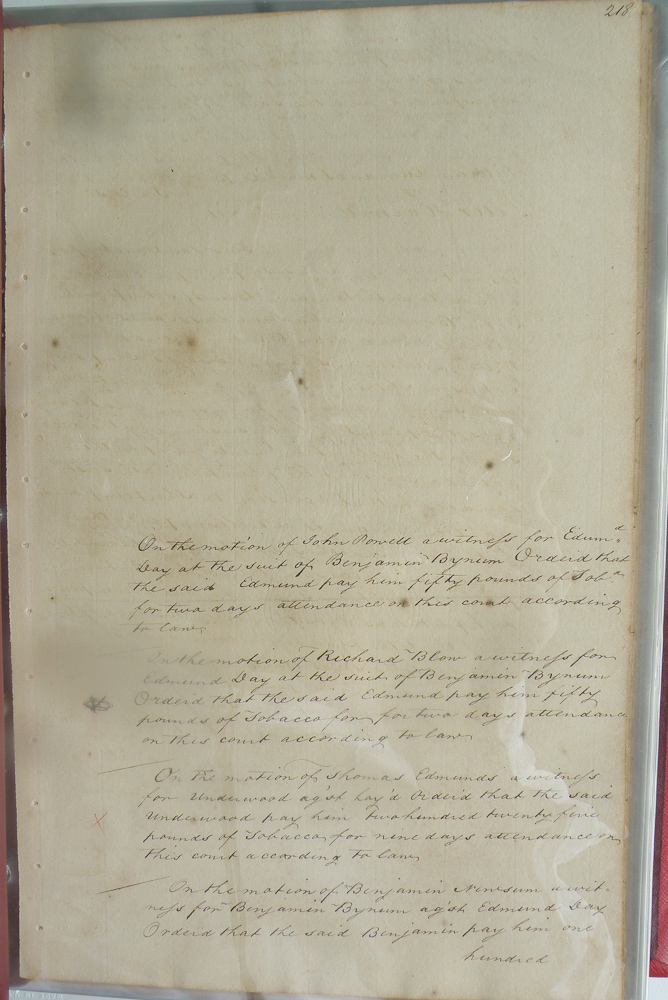 218
On the motion of John Powell a witness for Edumd
Day at the suit of Benjamin Bynum Orderd that
the said Edmund pay him fifty pounds of Tobo
for two days attendance on this court according
to law
On the motion of Richard Blow a witness for
Edmund Day at the suit of Benjamin Bynum
Orderd that the said Edmund pay him fifty
pounds of Tobacco for for two days attendance
on this court according to law
On the motion of Thomas Edmunds a witness
for Underwood agst Loyd Orderd that the said
Underwood pay him two hundred twenty five
pounds of Tobacco for nine days attendance on
this court according to law
On the motion of Benjamin Newsum a wit-
ness for Benjamin Bynum agst Edmund Day
Orderd that the said Benjamin pay him one
hundred